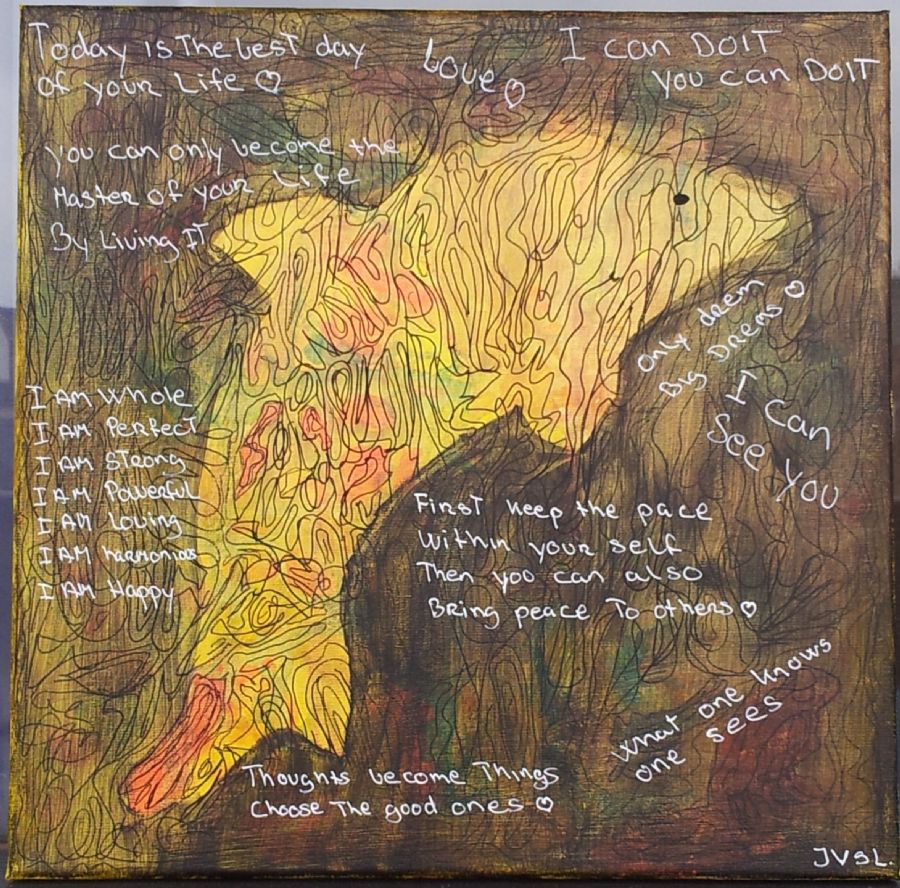 Today is The best day
of your Life ♡
Love ♡
I can DOIT
You can DOIT
You can only become the
Master of your Life
By Living IT
Only dreem
Big Dreems ♡
I can
See you
I AM Whole
I AM Perfect
I AM Strong
I AM Powerful
I AM Loving
I AM harmonias
I AM Happy
First keep the pace
Within your self
Then yoo can also
Bring peace To others ♡
What one knows
one sees
Thoughts become Things
Choose The good ones ♡
JVSL.